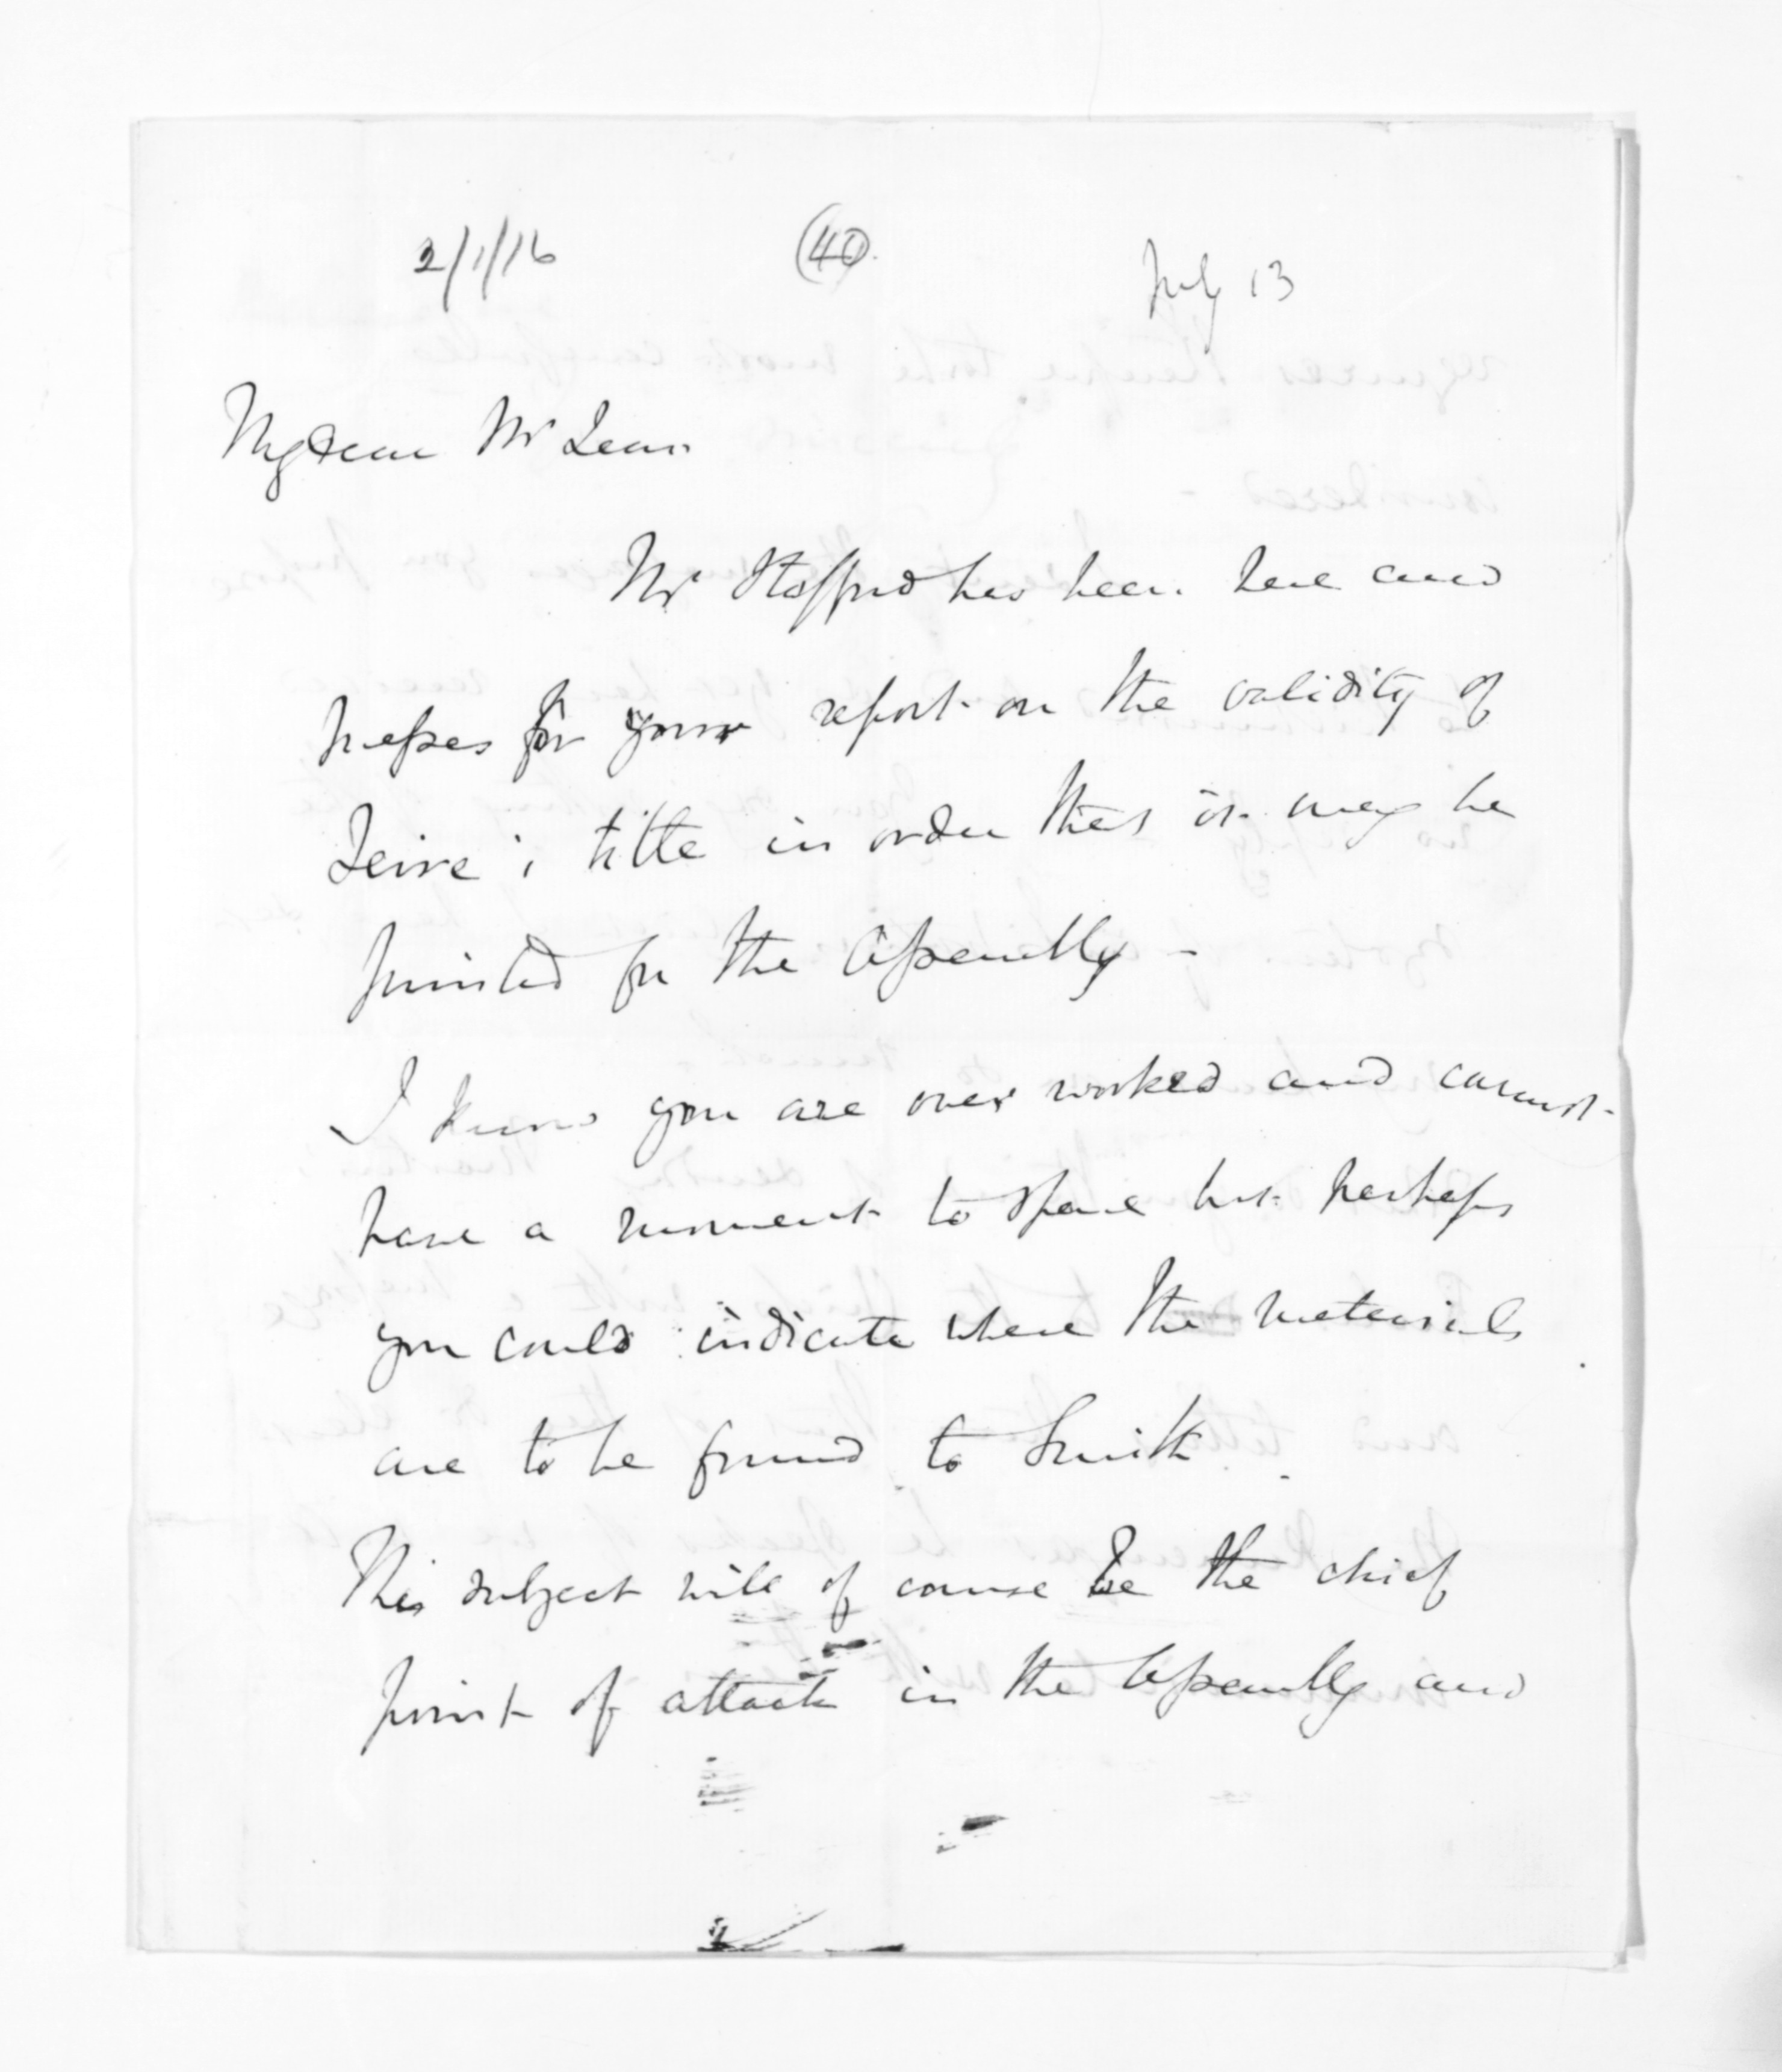 2/1/16 (40) July 13
My dear McLean
Mr Stafford has been here and
presses for your report on the validity of
Teira's title in order that it may be
printed for the Assembly -
I know you are over worked and cannot
have a moment to spare but perhaps
you could indicate where the materials
are to be found to Smith.
This subject will of course be the chief
point of attack in the Assembly and